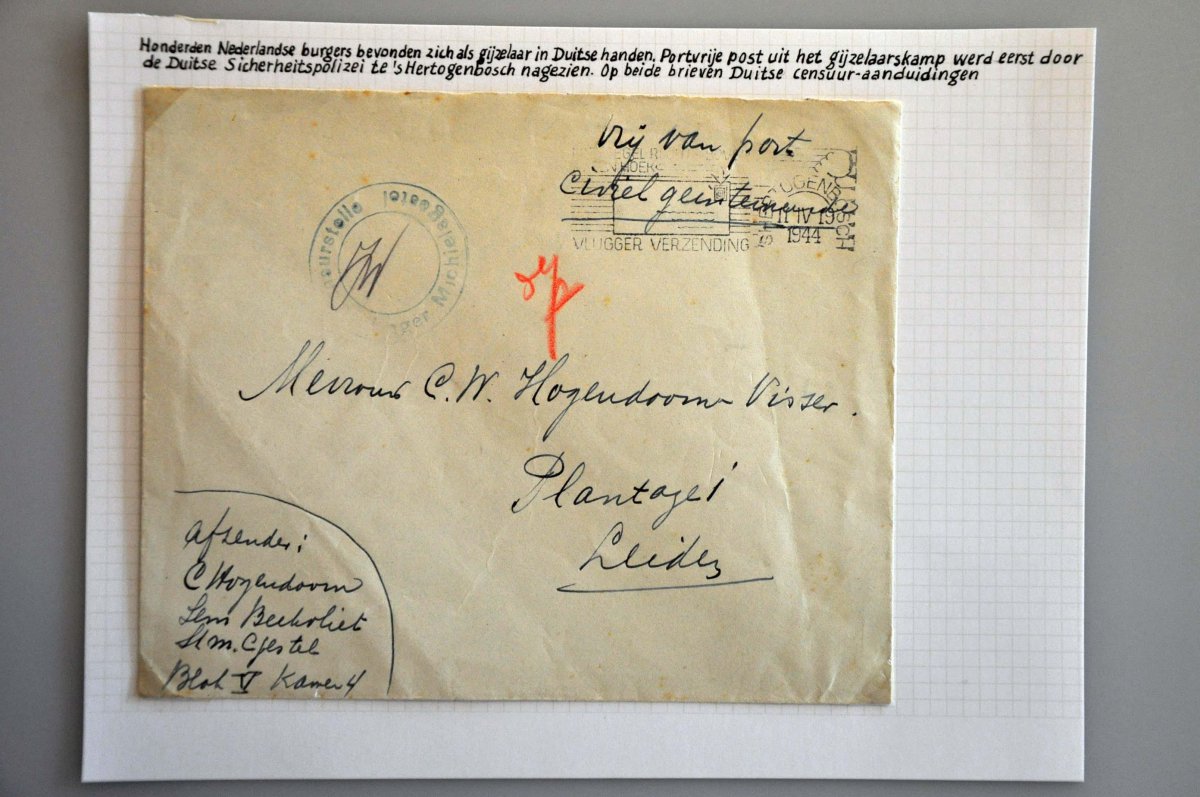 Honderden Nederlandse burgers bevonden zich als gijzelaar in Duitse handen. Portvrije post uit het gijzelaarskamp werd eerst door
de Duitse Sicherheitspolizei te 's Hertogenbosch nagezien. Op beide brieven Duitse censuur-aanduidingen
Vrij van port
civiel geinterneerde
VLUGGER VERZENDING
11 IV 19
1944
Mevrouw C.W. Hogendoorn-Visser.
Plantage 1
Leiden
afzender:
C Hogendoorn
Sem Beekvliet
St m. Gestel
Blok V Kamer 4